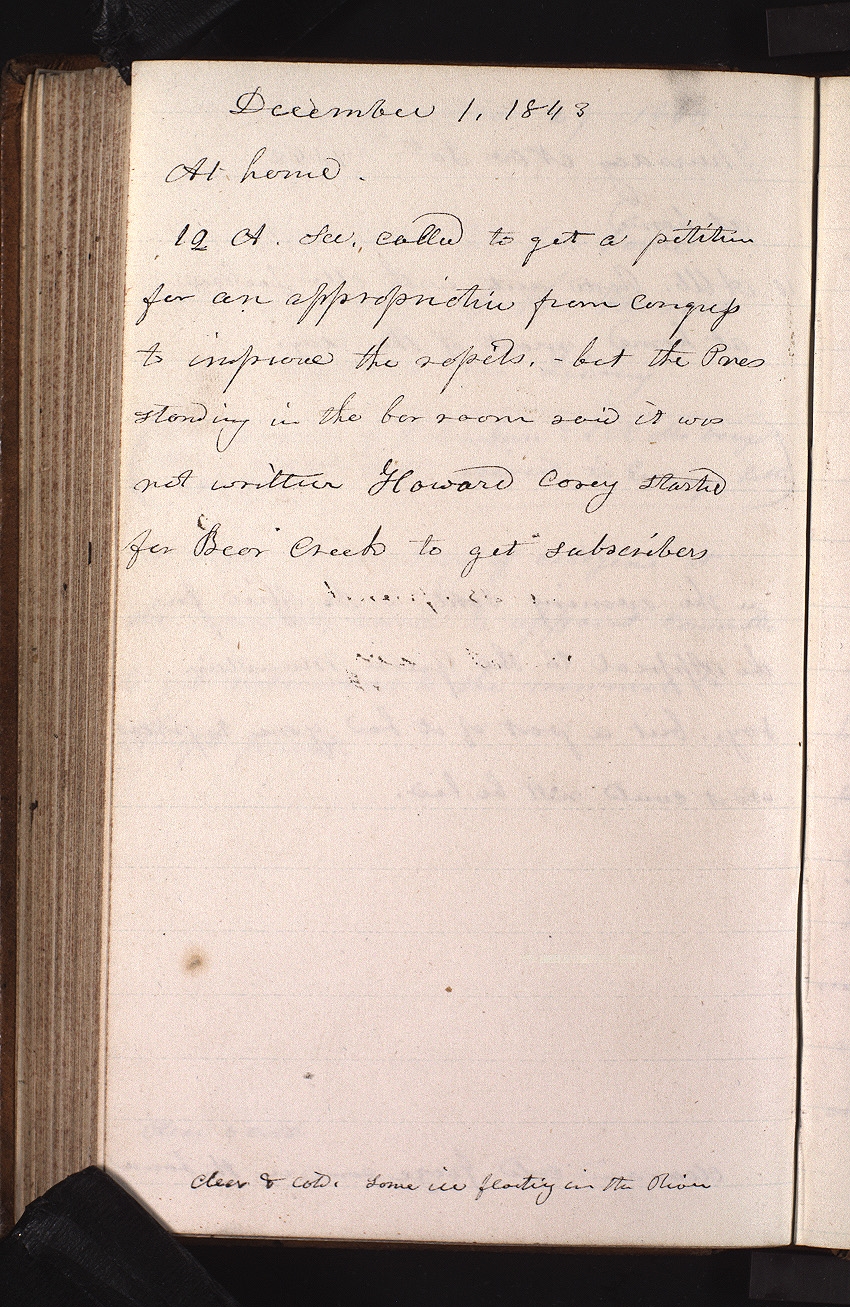 December 1, 1843
At home.
12 A. Lee. called to get a petition
for an appropriation from congress
to improve the rapids. - but the Pres
standing in the bar room said it was
not written Howard Corey started
for Bear Creek to get subscribers
clear & cold. some ice floating in the River